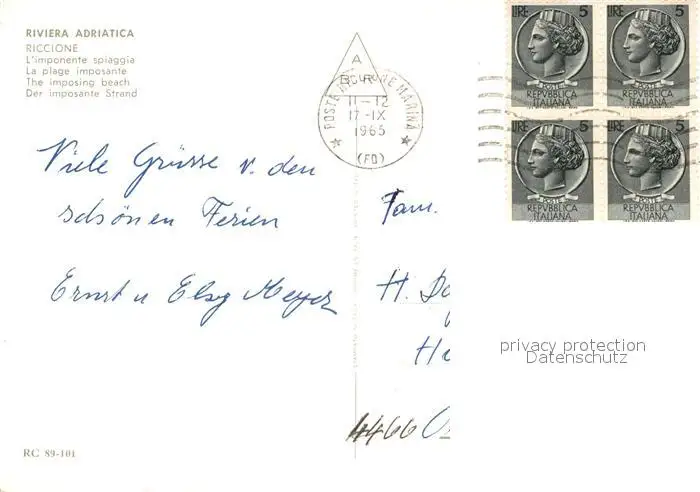 RIVIERA ADRIATICA
RICCIONE
L'imponente spiaggia
La plage imposante
The imposing beach
Der imposante Strand
Viele Grüsse v. den
schönen Ferien
Ernst u Elsy Meyer
RC 89-101
POSTE RICCIONE MARINA
11-12
17-IX
1965
(FO)
LIRE 5
POSTE
REPVBBLICA
ITALIANA
LIRE 5
POSTE
REPVBBLICA
ITALIANA
LIRE 5
POSTE
REPVBBLICA
ITALIANA
LIRE 5
POSTE
REPVBBLICA
ITALIANA
Fam.
H.
4466
privacy protection
Datenschutz